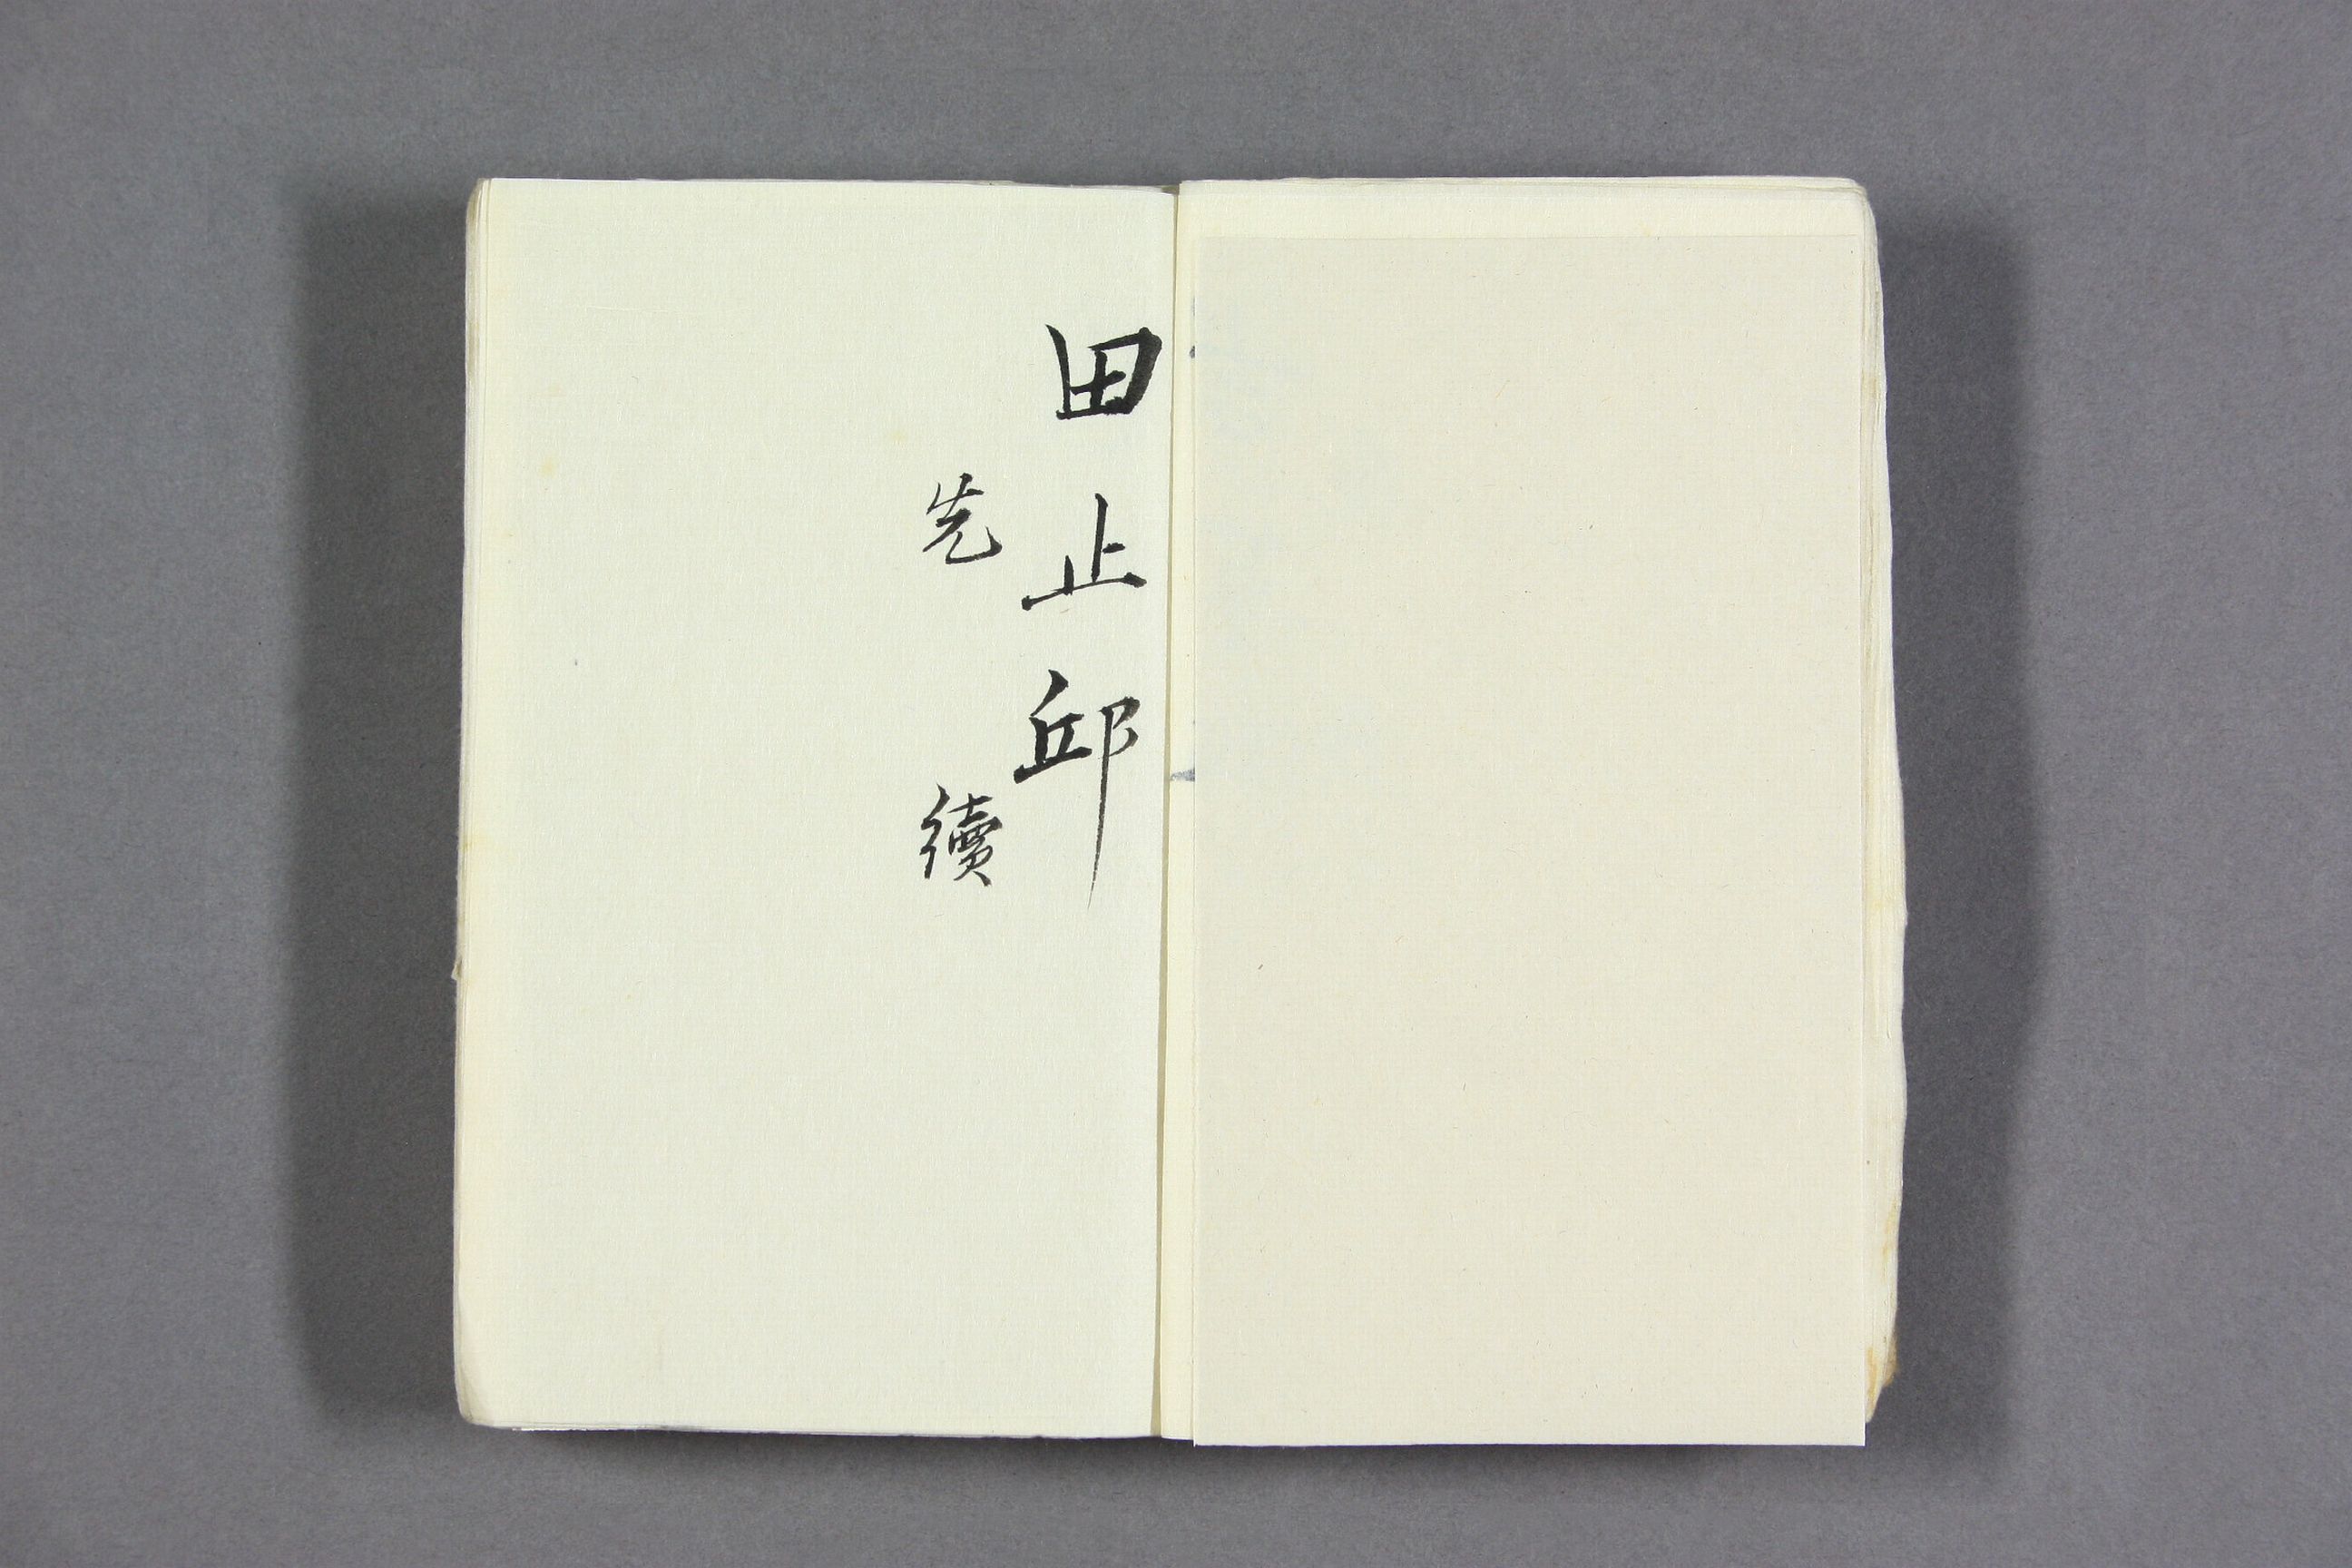 田止邱
先續